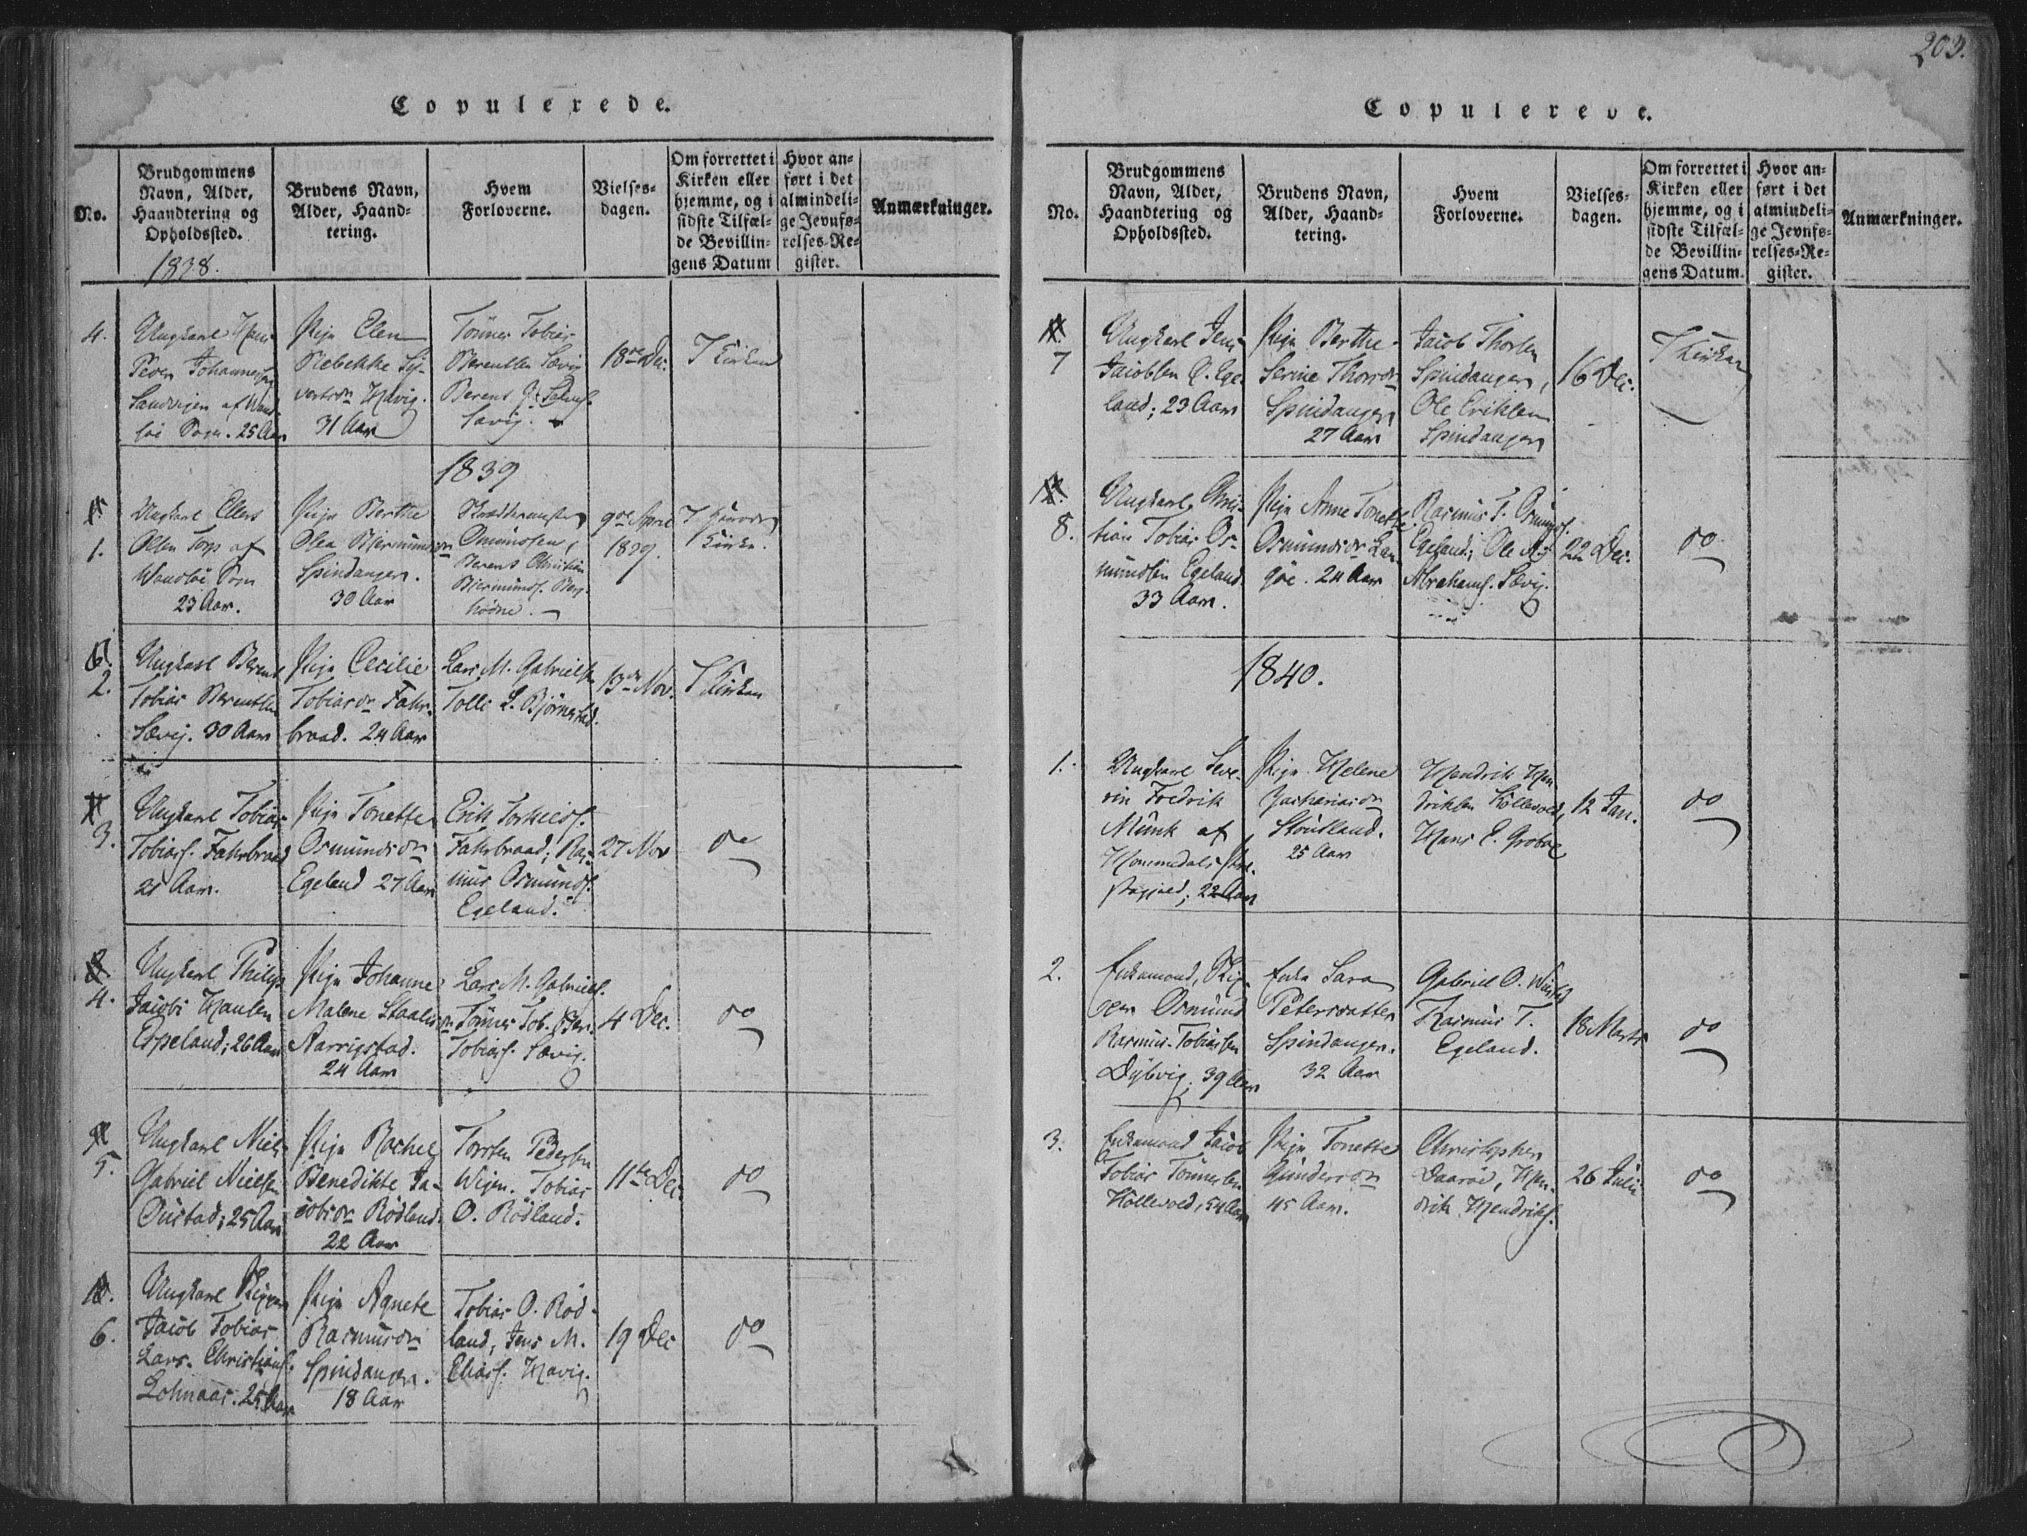 203.
Copulerede.
No.
Brudgommens
Navn, Alder,
Haandtering og
Opholdssted.
Brudens Navn,
Alder, Haand-
tering.
Hvem
Forloverne.
Vielses-
dagen.
Om forrettet i
Kirken eller
hjemme, og i
sidste Tilfæl-
de Bevillin-
gens Datum
Hvor an-
ført i det
almindeli-
ge Jevnfø-
relses-Re-
gister.
Anmærkninger.
1838.
4.
Ungkarl Hans
Peder Johannes
Sandvigen af
Sogn. 25 Aar
Pige Elen
Rebekke Sy-
vertsdr Havig.
31 Aar
Tönnes Tobias
Berentsen Sævig
Berent
Sævig.
18de Dec.
I Kirken
1839
1.
Ungkarl Ellert
Olsen Torp af
Wandsöe Sogn
23 Aar.
Pige Berthe
Olea Bjermundsdr
Spindangen.
30 Aar
Omundsen,
Berent Christian
Bjermunds.
9de April
1839.
I
Kirke.
6.
2.
Ungkarl Berent
Tobias Berentsen
Sævig. 30 Aar
Pige Cecilie
Tobiasdr Fahr-
braad. 24 Aar
Lars M. Gabrielsen
Tolle L. Björnestad.
13de Nov.
I Kirken
3.
Ungkarl Tobias
Tobiass. Fahrbraad
21 Aar.
Pige Tonette
Osmundsdr
Egeland 27 Aar
Erik Torkields.
Fahrbraad; Ras-
mus Osmunds.
Egeland.
27 Nov
do
8.
4.
Ungkarl Philip
Jacobs Hansen
Espeland; 26 Aar
Pige Johanne
Malene Staalesdr
Narrigstad.
24 Aar
Lars M. Gabriels.
Tönnes Tob. Ber.
Tobiass. Sævig.
4 Dec.
do
5.
Ungkarl Niels
Gabriel Nielsen
Oustad; 25 Aar
Pige Rachel
Benedikte Ja-
cobsdr Rödland.
22 Aar
Torsten Pedersen
Wigen. Tobias
O. Rödland.
11te Dec.
do
10.
6.
Ungkarl
Jacob Tobias
Lars. Christians.
Lohnaas. 25 Aar
Pige Agnete
Rasmusdr
Spindangen.
18 Aar
Tobias O. Röd-
land, Jens M.
Eliass. Havig.
19 Dec
do
Copulerede.
No.
Brudgommens
Navn, Alder,
Haandtering og
Opholdssted.
Brudens Navn,
Alder, Haand-
tering.
Hvem
Forloverne.
Vielses-
dagen.
Om forrettet i
Kirken eller
hjemme, og i
sidste Tilfæl-
de Bevillin-
gens Datum.
Hvor an-
ført i det
almindeli-
ge Jevnfø-
relses-Re-
gister.
Anmærkninger.
7
Ungkarl Jens
Jacobsen O. Ege-
land; 23 Aar
Pige Berthe
Serine Thorsdr
Spindangen
27 Aar
Jacob Thorsen
Spindangen,
Ole Eriksen
Spindangen
16 Dec.
I Kirken
8.
Ungkarl Chris-
tian Tobias Os-
mundsen Egeland
33 Aar.
Pige Anne Tonette
Osmundsdr Lan-
göe. 24 Aar
Rasmus T. Osmunds.
Egeland; Ole
Abrahams. Sævig.
22 Dec.
do
1840.
1.
Ungkarl Seve-
rin Fredrik
Munk af
Hommedals Præ-
stegjeld; 22 Aar
Pige Helene
Zachariasdr
Stöutland.
25 Aar
Hendrik Hen-
driksen Höllevold,
Hans E. Groboe
12 Jan.
do
2.
Enkemand,
Osmund
Rasmus Tobiassen
Dybvig; 39 Aar
Enke Sara
Petersdatter
Spindangen.
32 Aar
Gabriel O.
Rasmus T.
Egeland.
18 Marts
do
3.
Enkemand Jacob
Tobias Tönnesen
Höllevold, 54 Aar
Pige Tonette
Gundersdr
45 Aar.
Christopher
Daaröe, Hen-
drik Hendriks.
26 Juli
do